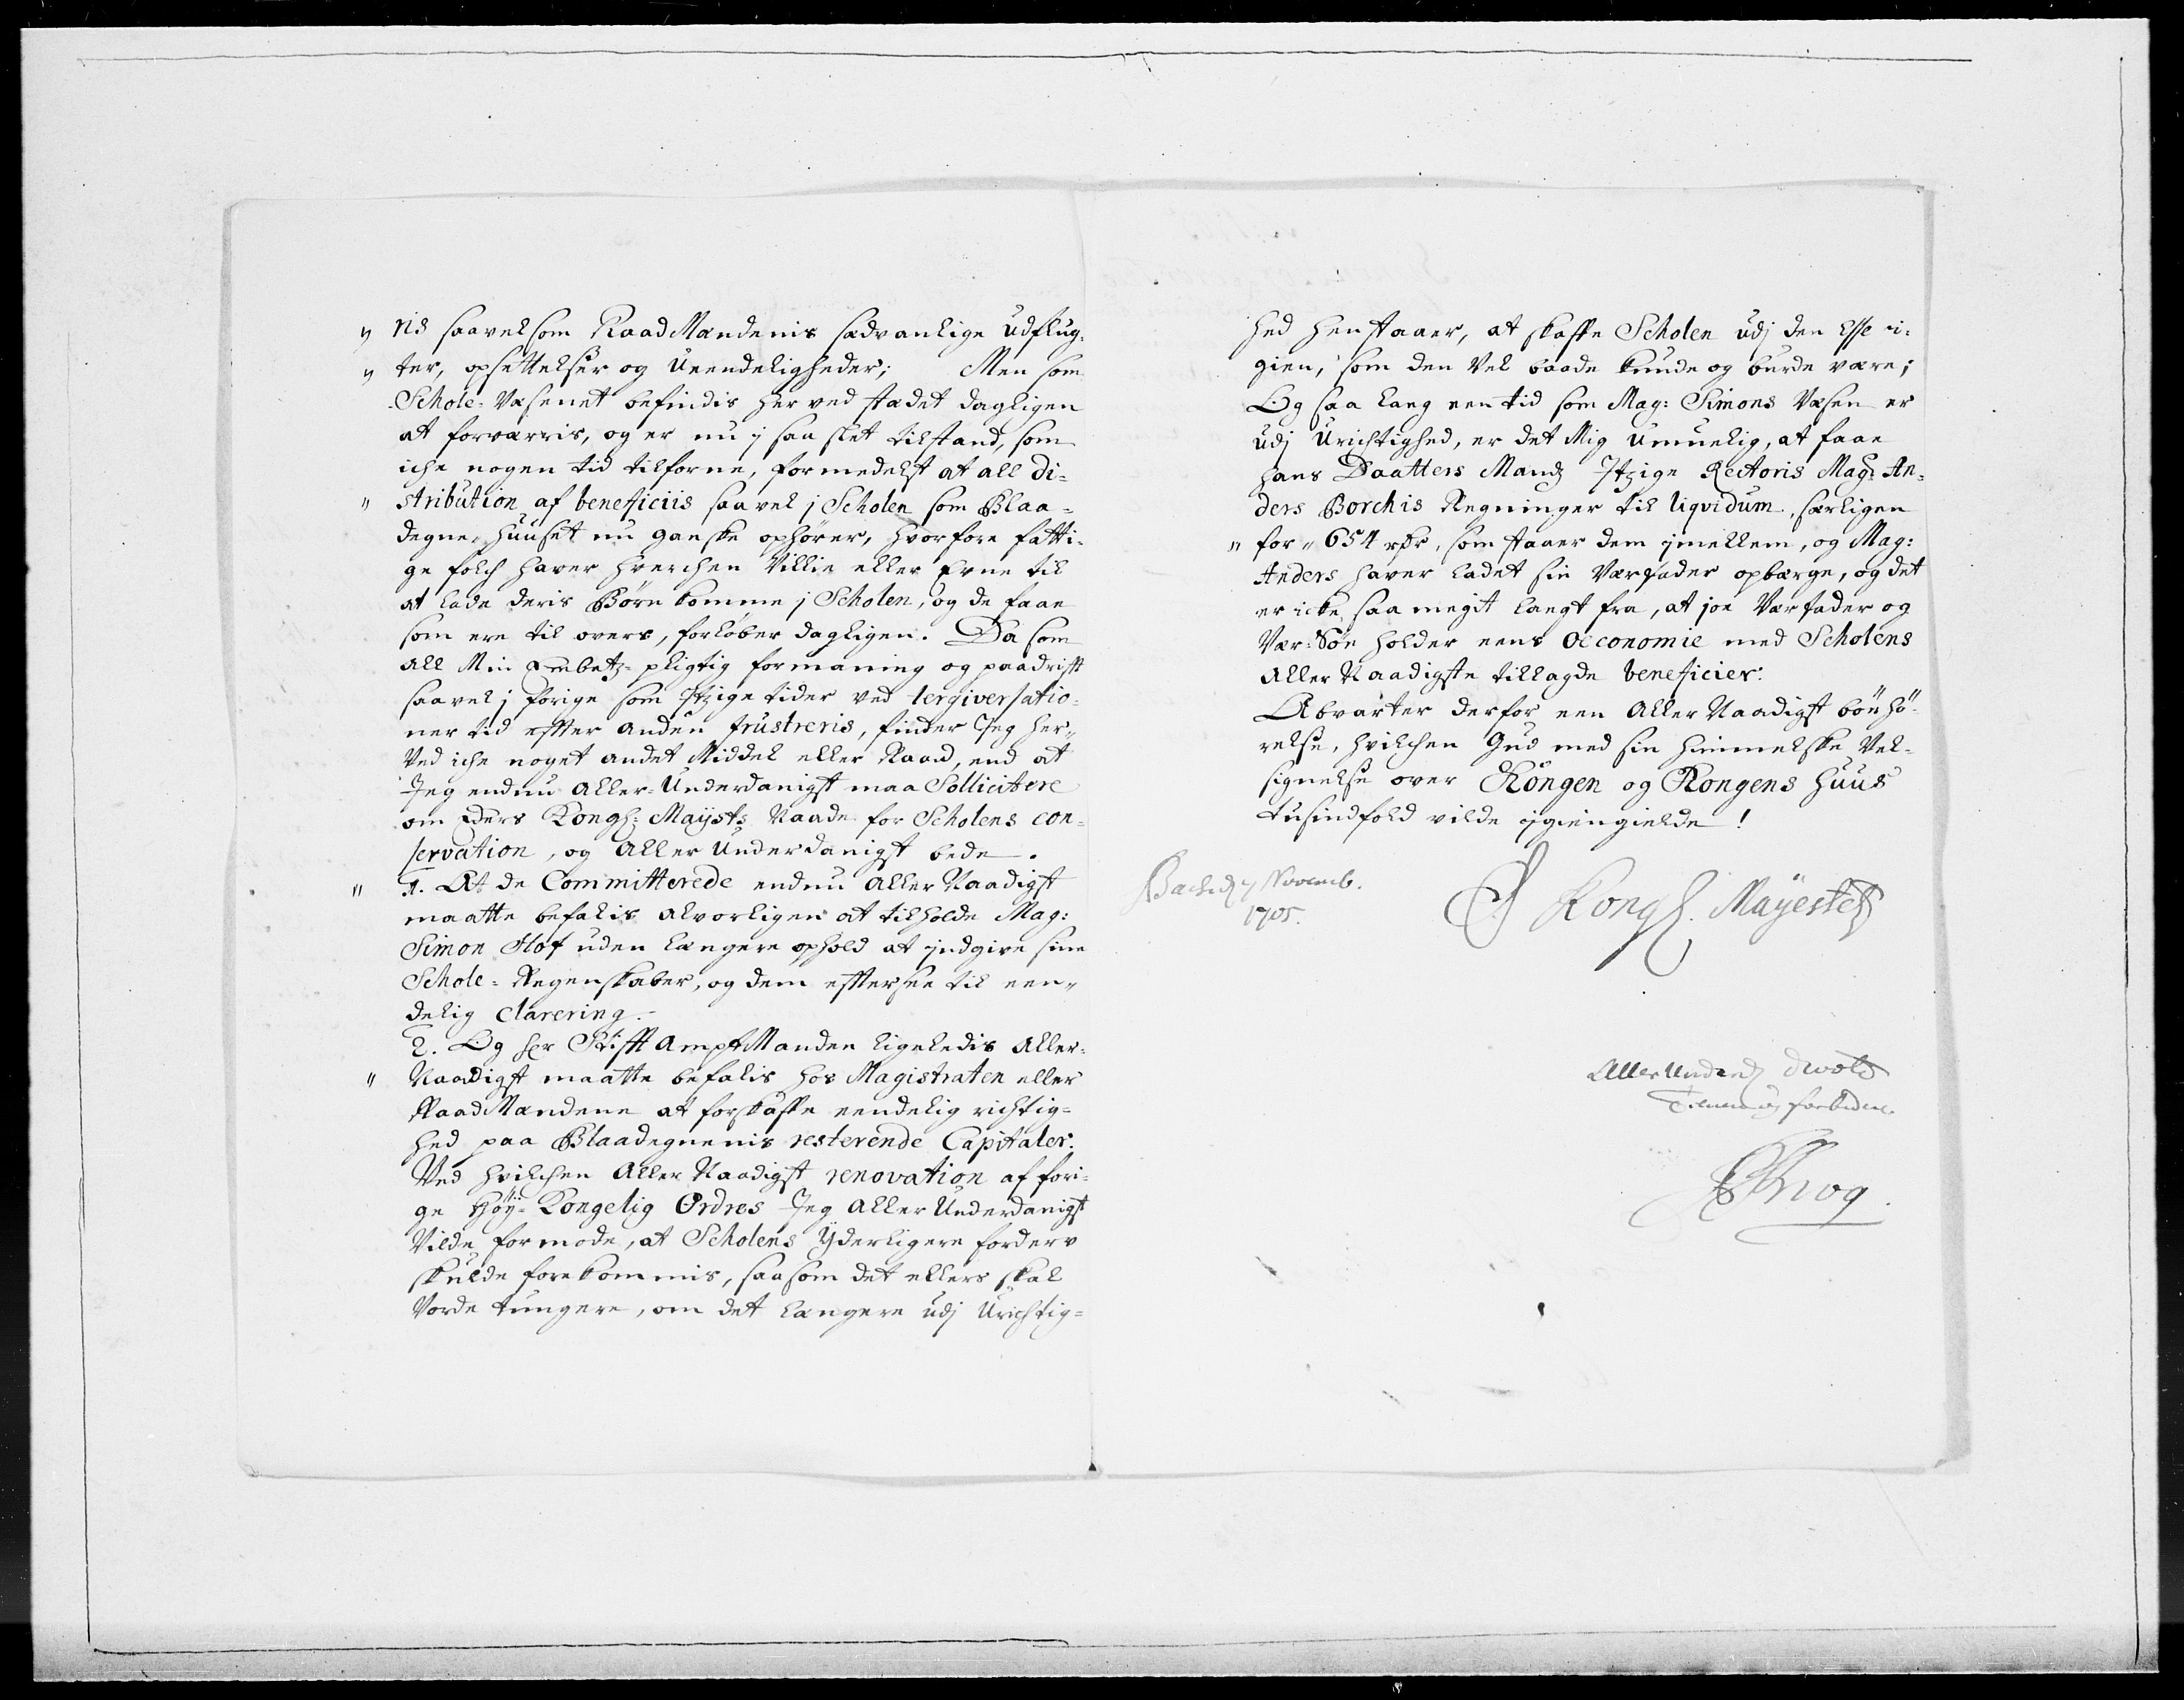 " ris saavelsom RaadMændenis sædvanlige Udflug-
" ter, opsettelser og Uendeligheder; Men som
Schole-Væsenet befindis her ved stædet dagligen
at forværris, og er nu j saa slet tilstand, som
iche nogen tid tilforne, formedelst at all di-
" stribution af beneficiis saavel j Scholen som Blaa-
degne-huuset nu ganske ophører, hvorfore fatti-
ge folch haver hverchen Villie eller Evne til
at lade deris Børn komme j Scholen, og de faae
som ere til overs, forløber dagligen. Da som
all Min Embetz-pligtig formaning og paadrifft
saavel j forige som Itzige tider ved tergiversatio-
ner tid effter anden frustreris, finder Jeg her-
Ved iche noget andet Middel eller Raad, end at
Jeg endnu Aller-Underdanigst maa Sollicitere
om Eders Kongl: Mayts Naade for Scholens con-
servation, og Aller Underdanigst bede.
" 1. At de Committerede endnu Aller Naadigst
maatte befalis alvorligen at tilholde Mag:
Simon Hof uden længere ophold at jndgive sine
Schole-Regenskaber, og dem efftersee til een-
delig clarering.
2. Og her StifftAmptManden ligeledis Aller-
" Naadigst maatte befalis hos Magistraten eller
RaadMændene at forskaffe eendelig richtig-
hed paa Blaadegnenis resterende Capitaler.
Ved hvilchen Aller Naadigst renovation af fori-
ge Høy-Kongelig Ordres Jeg Aller Underdanigst
Vilde formode, at Scholens Yderligere forderv
skulde forekommis, saasom det ellers skal
Vorde tungere, om det længere udj Urichtig-
hed henstaaer, at skaffe Scholen udj den Esse i-
gien, som den Vel baade kunde og burde være;
Og saa lang een tid som Mag: Simons Væsen er
udj Urichtighed, er det Mig Umuelig, at faae
hans Daatters Mandz Itzige Rectoris Mag: An-
ders Borchis Regninger til liqvidum, særligen
" for " 654 rdr, som staaer dem jmellem, og Mag:
Anders haver ladet sin Værfader opbærge, og det
er icke saa megit langt fra, at joe Værfader og
Vær-Søn holder eens Oeconomie med Scholens
Aller Naadigste tillagde beneficier.
Abvarter derfor een Aller Naadigst bønhø-
relse, hvilchen Gud med sin himmelske Vel-
signelse over Kongen og Kongens Huus
tusindfold vilde jgiengielde!
7 Novemb.
1705.
Kongl. Mayestets
Aller Underd
forbeder
Krog.